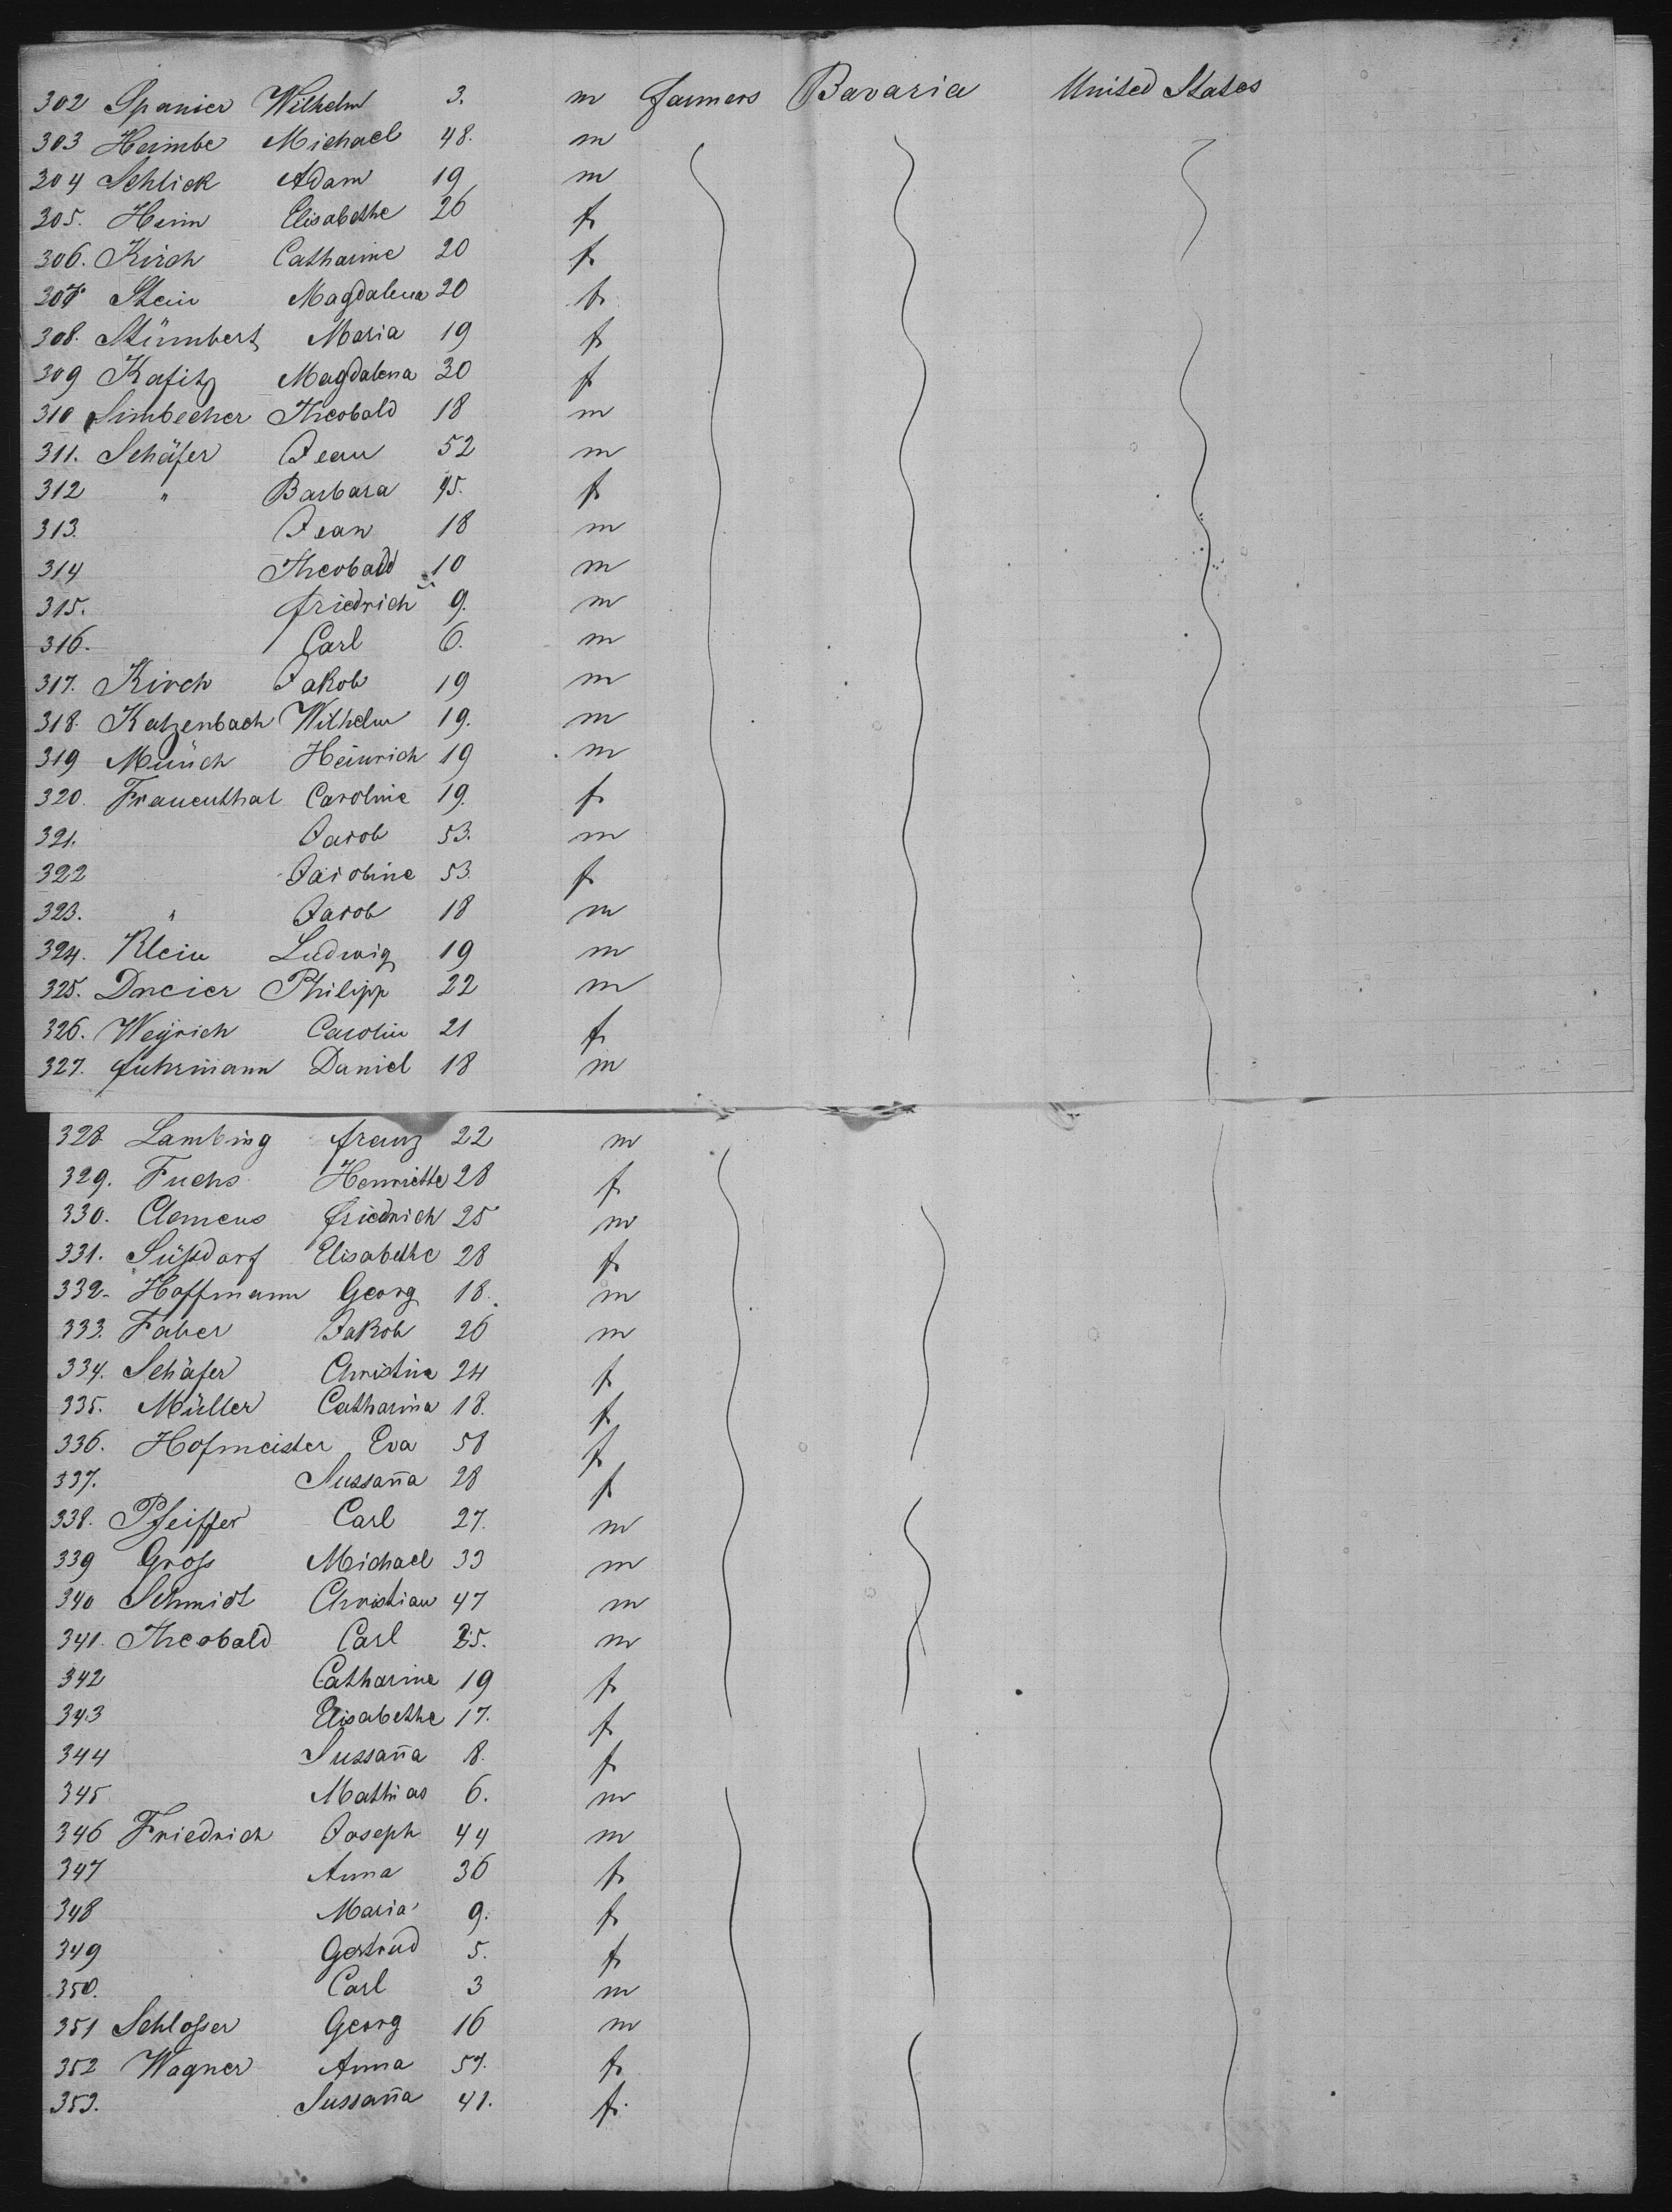 302 Spanier Wilhelm 3. m farmers Bavaria United States
303 Heimbe Michael 48. m
304 Schlick Adam 19 m
305. Heim Elisabethe 26 f
306. Kirch Catharine 20 f
307. Stein Magdalena 20 f
308. Stümbert Maria 19 f
309 Kafitz Magdalena 30 f
310 Simbecher Theobald 18 m
311. Schäfer Jean 52 m
312 " Barbara 45. f
313. Jean 18 m
314 Theobald 10 m
315. friedrich 9. m
316. Carl 6. m
317. Kirch Jakob 19 m
318. Katzenbach Wilhelm 19. m
319 Münch Heinrich 19 m
320. Frauenthal Caroline 19. f
321. Jacob 53. m
322 Jacobine 53. f
323. " Jacob 18 m
324. Klein Ludwig 19 m
325. Philipp 22 m
326. Weyrich Carolin 21 f
327. fuhrmann Daniel 18 m
328. Lambing franz 22 m
329. Fuchs Henriette 28 f
330. Clemens friedrich 25 m
331. Süßdorf Elisabethe 28 f
332. Hoffmann Georg 18. m
333. Faber Jakob 26 m
334. Schäfer Christine 24 f
335. Müller Catharina 18. f
336. Hofmeister Eva 58 f
337. Sussan̄a 28 f
338. Pfeiffer Carl 27. m
339 Groß Michael 33 m
340 Schmidt Christian 47 m
341. Theobald Carl m
342 Catharine 19 f
343 Elisabethe 17. f
344 Sussan̄a 8. f
345 Mathias 6. m
346 Friedrich Joseph 44 m
347 Anna 36 f
348 Maria 9. f
349 Gertrud 5. f
350. Carl 3 m
351 Schloßer Georg 16 m
352 Wagner Anna 57. f
353. Sussan̄a 41. f.